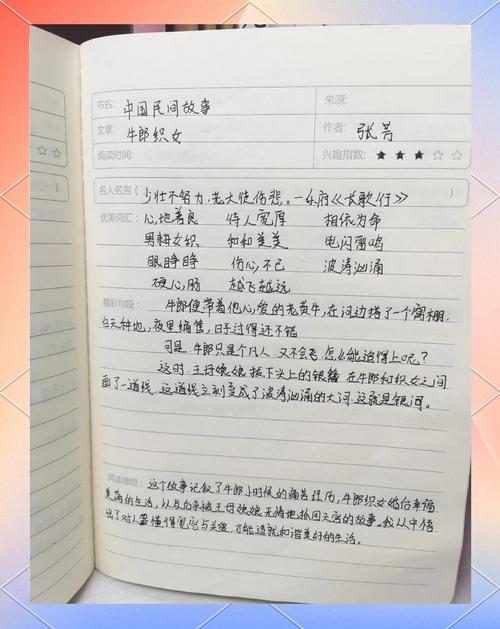 书名: 中国民间故事 来源:
文章: 牛郎织女 作者: 张芳
阅读时间: 兴趣指数: ★ ★ ★ ☆ ☆
名人名言( 少壮不努力,老大徒伤悲。—乐府《长歌行》 )
优美词汇: 心地善良 待人宽厚 相依为命
男耕女织 和和美美 电闪雷鸣
眼睁睁 伤心不已 波涛汹涌
硬心肠 越飞越远
精彩句段: 牛郎便带着他心爱的老黄牛,在河边搭了一个窝棚,
白天种地,夜里编筐,日子过得还不错
可是,牛郎只是个凡人,又不会飞,怎么能追得上呢?
这时,王母娘娘拔下头上的银簪,在牛郎和织女之间
画了一道线,这道线立刻变成了波涛汹涌的大河,这就是银河。
阅读感想: 这个故事记叙了牛郎小时候的痛苦经历,牛郎织女婚后幸福
美满的生活,以及后来被王母娘娘无情地抓回天宫的故事。我从中悟
出了对人要懂得宽容与关爱,才能造就和谐美好的生活。